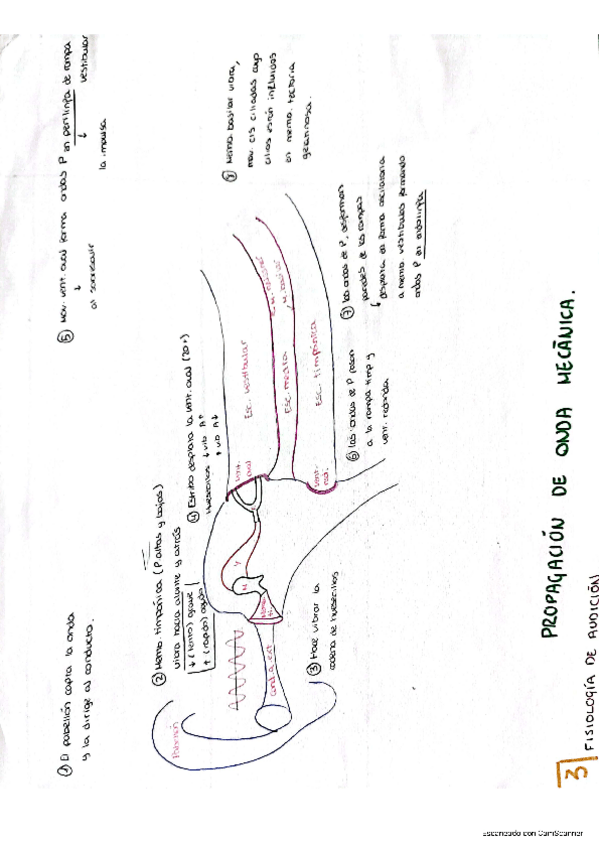 3 FISIOLOGÍA DE AUDICIÓN
PROPAGACIÓN DE ONDA MECÁNICA.
① El pabellón capta la onda
y la dirige al conducto.
② Memb. timpánica (P altas y bajas)
vibra hacia alante y atrás
↓ (lento) grave
↑ (rápido) agudo
③ Hace vibrar la
cadena de huesecillos
④ Estribo desplaza la vent. oval (20+)
Huesecillos ↓ vib A↑
↑ vib A↓
⑤ Mov. vent. oval forma ondas P en perilinfa de rampa
↓ ↓ vestibular
al sobresalir la impulsa
⑥ las ondas de P pasan
a la rampa timp y
vent. redonda
⑦ Las ondas de P, deforman
paredes de las rampas
↓ desplaza en forma oscilatoria
a memb. vestibular formando
ondas P en endolinfa
⑧ Memb. basilar vibra,
mov. cls ciliadas cuyo
cilios están incluidos
en memb. tectoria
gelatinosa.
Pabellón
cond. a. ext
M
Y
vent. oval
vent. red.
Esc. vestibular
Esc. media
M. basilar
Esc. timpánica
Escaneado con CamScanner